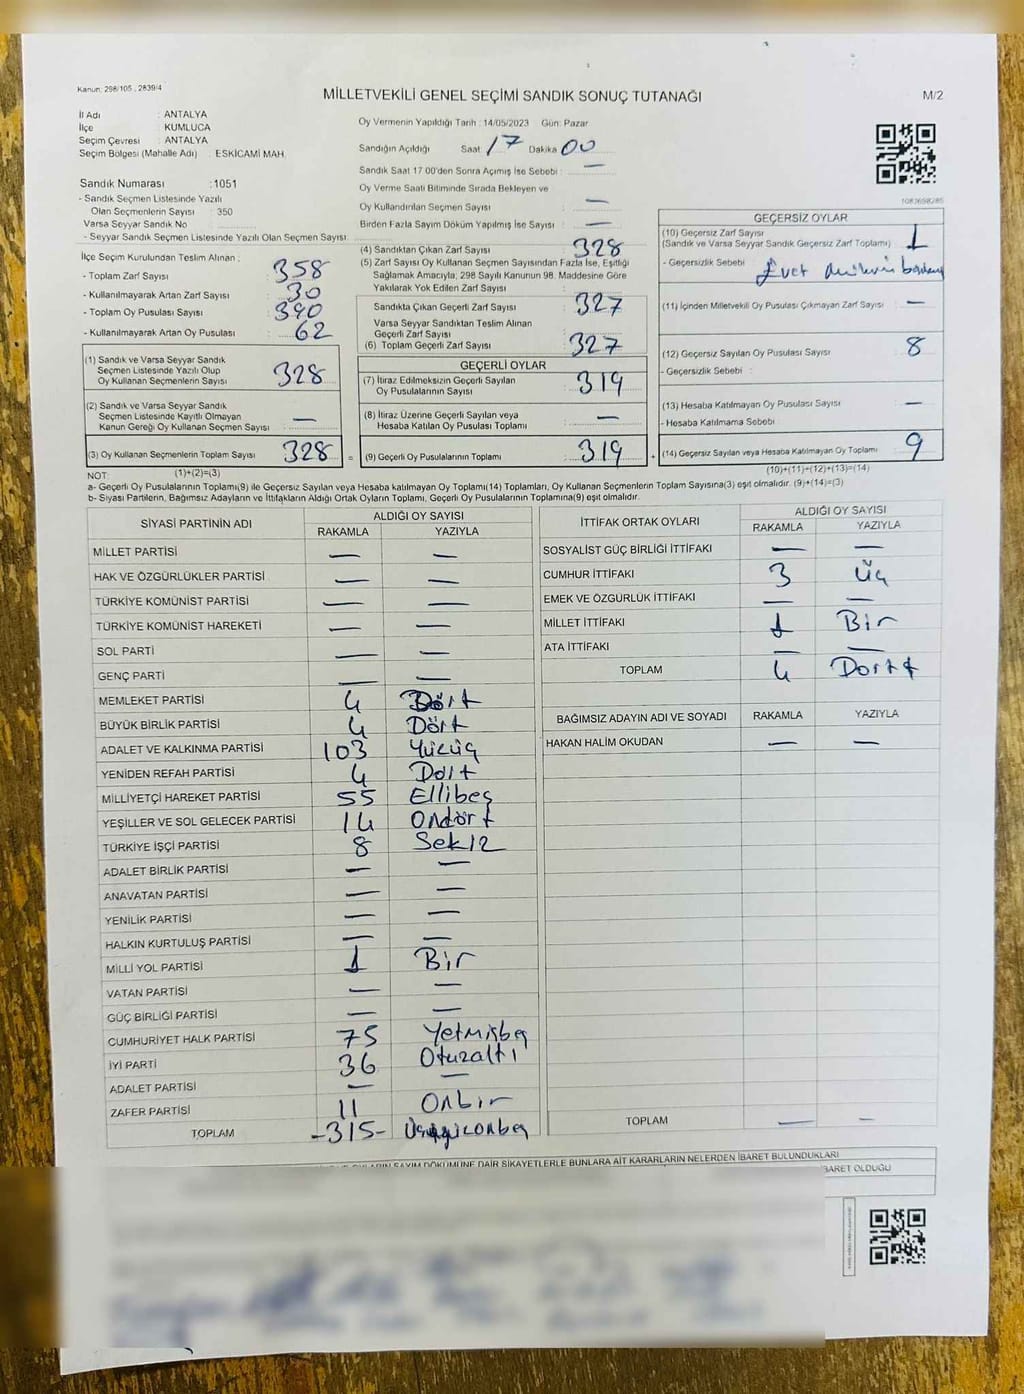 Kanun: 298/105 , 2839/4
MİLLETVEKİLİ GENEL SEÇİMİ SANDIK SONUÇ TUTANAĞI
M/2
İl Adı : ANTALYA
İlçe : KUMLUCA
Seçim Çevresi : ANTALYA
Seçim Bölgesi (Mahalle Adı) : ESKİCAMİ MAH.
Sandık Numarası :1051
- Sandık Seçmen Listesinde Yazılı
Olan Seçmenlerin Sayısı : 350
Varsa Seyyar Sandık No :
- Seyyar Sandık Seçmen Listesinde Yazılı Olan Seçmen Sayısı:
Oy Vermenin Yapıldığı Tarih : 14/05/2023 Gün: Pazar
Sandığın Açıldığı Saat 17 Dakika 00
Sandık Saat 17 00'den Sonra Açımış İse Sebebi : —
Oy Verme Saati Bitiminde Sırada Bekleyen ve
Oy Kullandırılan Seçmen Sayısı : —
Birden Fazla Sayım Döküm Yapılmış İse Sayısı : —
1083698285
İlçe Seçim Kurulundan Teslim Alınan :
- Toplam Zarf Sayısı : 358
- Kullanılmayarak Artan Zarf Sayısı : 30
- Toplam Oy Pusulası Sayısı : 390
- Kullanılmayarak Artan Oy Pusulası : 62
(1) Sandık ve Varsa Seyyar Sandık
Seçmen Listesinde Yazılı Olup
Oy Kullanan Seçmenlerin Sayısı : 328
(2) Sandık ve Varsa Seyyar Sandık
Seçmen Listesinde Kayıtlı Olmayan
Kanun Gereği Oy Kullanan Seçmen Sayısı : —
(3) Oy Kullanan Seçmenlerin Toplam Sayısı : 328 =
(4) Sandıktan Çıkan Zarf Sayısı : 328
(5) Zarf Sayısı Oy Kullanan Seçmen Sayısından Fazla İse, Eşitliği
Sağlamak Amacıyla; 298 Sayılı Kanunun 98. Maddesine Göre
Yakılarak Yok Edilen Zarf Sayısı :
Sandıkta Çıkan Geçerli Zarf Sayısı : 327
Varsa Seyyar Sandıktan Teslim Alınan
Geçerli Zarf Sayısı :
(6) Toplam Geçerli Zarf Sayısı : 327
GEÇERLİ OYLAR
(7) İtiraz Edilmeksizin Geçerli Sayılan
Oy Pusulalarının Sayısı : 319
(8) İtiraz Üzerine Geçerli Sayılan veya
Hesaba Katılan Oy Pusulası Toplamı : —
(9) Geçerli Oy Pusulalarının Toplamı : 319 +
GEÇERSİZ OYLAR
(10) Geçersiz Zarf Sayısı : 1
(Sandık ve Varsa Seyyar Sandık Geçersiz Zarf Toplamı)
- Geçersizlik Sebebi : Evet
(11) İçinden Milletvekili Oy Pusulası Çıkmayan Zarf Sayısı : —
(12) Geçersiz Sayılan Oy Pusulası Sayısı : 8
- Geçersizlik Sebebi :
(13) Hesaba Katılmayan Oy Pusulası Sayısı : —
- Hesaba Katılmama Sebebi :
(14) Geçersiz Sayılan veya Hesaba Katılmayan Oy Toplamı : 9
NOT: (1)+(2)=(3)
(10)+(11)+(12)+(13)=(14)
a- Geçerli Oy Pusulalarının Toplamı(9) ile Geçersiz Sayılan veya Hesaba Katılmayan Oy Toplamı(14) Toplamları, Oy Kullanan Seçmenlerin Toplam Sayısına(3) eşit olmalıdır. (9)+(14)=(3)
b- Siyasi Partilerin, Bağımsız Adayların ve İttifakların Aldığı Ortak Oyların Toplamı, Geçerli Oy Pusulalarının Toplamına(9) eşit olmalıdır.
SİYASİ PARTİNİN ADI ALDIĞI OY SAYISI
RAKAMLA YAZIYLA
MİLLET PARTİSİ — —
HAK VE ÖZGÜRLÜKLER PARTİSİ — —
TÜRKİYE KOMÜNİST PARTİSİ — —
TÜRKİYE KOMÜNİST HAREKETİ — —
SOL PARTİ — —
GENÇ PARTİ — —
MEMLEKET PARTİSİ 4 Dört
BÜYÜK BİRLİK PARTİSİ 4 Dört
ADALET VE KALKINMA PARTİSİ 103 Yüzüç
YENİDEN REFAH PARTİSİ 4 Dört
MİLLİYETÇİ HAREKET PARTİSİ 55 Ellibeş
YEŞİLLER VE SOL GELECEK PARTİSİ 14 Ondört
TÜRKİYE İŞÇİ PARTİSİ 8 Sekiz
ADALET BİRLİK PARTİSİ — —
ANAVATAN PARTİSİ — —
YENİLİK PARTİSİ — —
HALKIN KURTULUŞ PARTİSİ — —
MİLLİ YOL PARTİSİ 1 Bir
VATAN PARTİSİ — —
GÜÇ BİRLİĞİ PARTİSİ — —
CUMHURİYET HALK PARTİSİ 75 Yetmişbeş
İYİ PARTİ 36 Otuzaltı
ADALET PARTİSİ — —
ZAFER PARTİSİ 11 Onbir
TOPLAM -315- Üçyüzonbeş
İTTİFAK ORTAK OYLARI ALDIĞI OY SAYISI
RAKAMLA YAZIYLA
SOSYALİST GÜÇ BİRLİĞİ İTTİFAKI — —
CUMHUR İTTİFAKI 3 Üç
EMEK VE ÖZGÜRLÜK İTTİFAKI — —
MİLLET İTTİFAKI 1 Bir
ATA İTTİFAKI — —
TOPLAM 4 Dört
BAĞIMSIZ ADAYIN ADI VE SOYADI RAKAMLA YAZIYLA
HAKAN HALİM OKUDAN — —
TOPLAM — —
SAYIM DÖKÜMÜNE DAİR ŞİKAYETLERLE BUNLARA AİT KARARLARIN NELERDEN İBARET BULUNDUKLARI
İBARET OLDUĞU